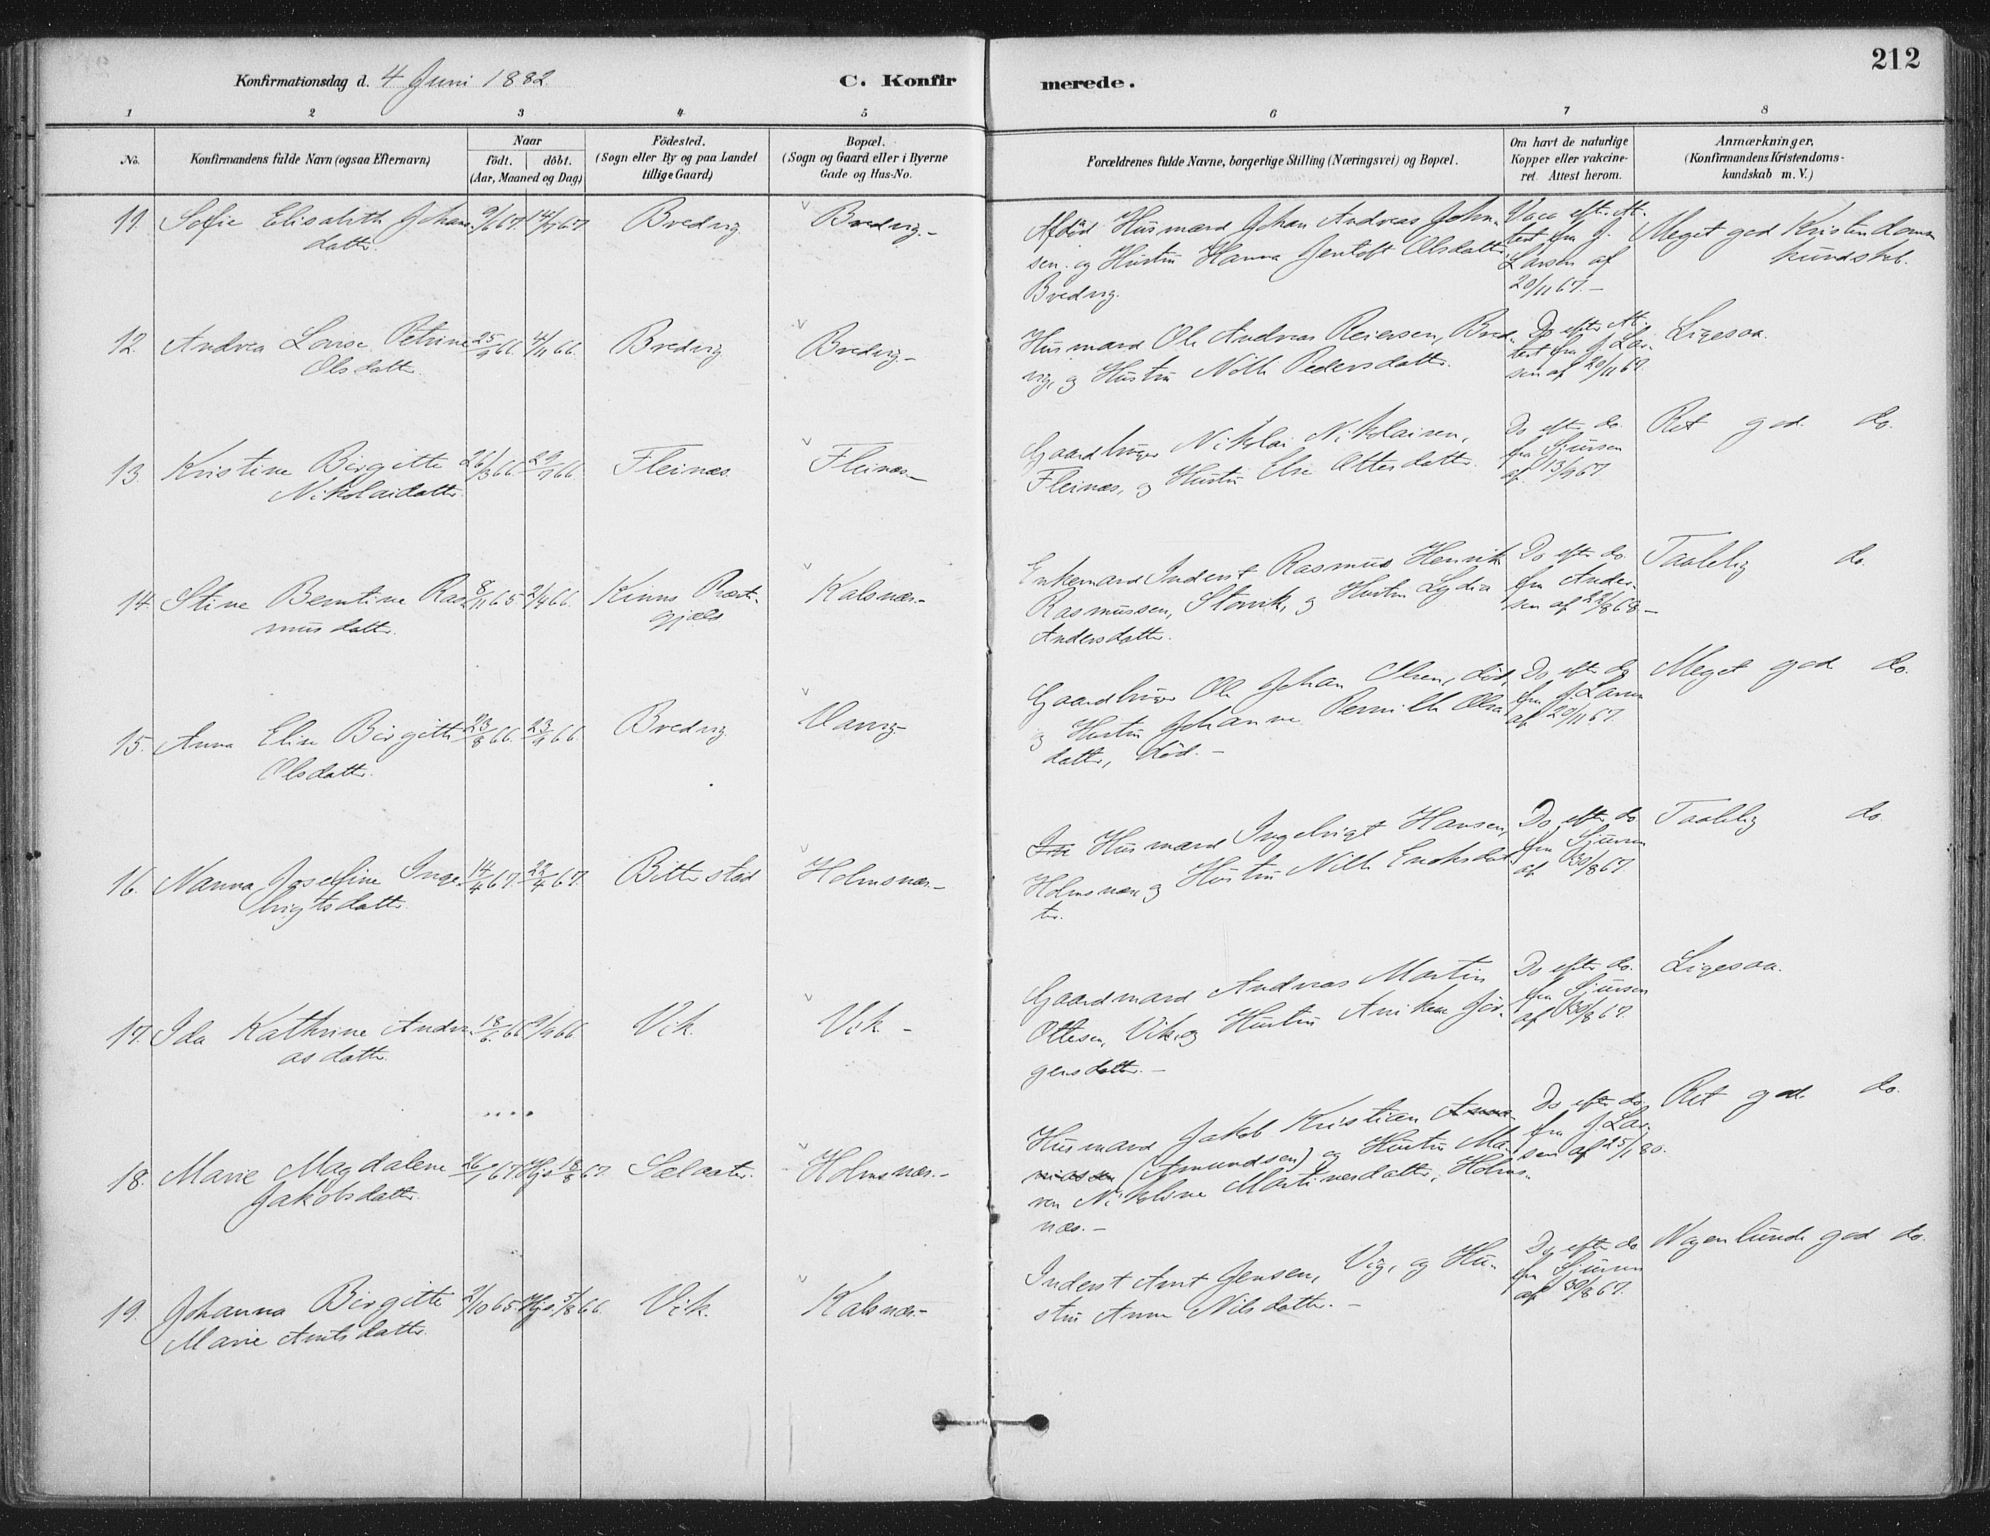 212
Konfirmationsdag d. 4 Juni 1882.
C. Konfirmerede.
1 2 3 4 5 6 7 8
No.
Konfirmandens fulde Navn (ogsaa Efternavn)
Naar
født. døbt.
(Aar, Maaned og Dag)
Fødested.
(Sogn eller By og paa Landet
tillige Gaard)
Bopæl.
(Sogn og Gaard eller i Byerne
Gade og Hus-No.
Forældrenes fulde Navne, borgerlige Stilling (Næringsvei) og Bopæl.
Om havt de naturlige
Kopper eller vakcine-
ret. Attest herom.
Anmærkninger,
(Konfirmandens Kristendoms-
kundskab m. V.)
11. Sofie Elisabeth Johans-
datter.
9/6 67. 14/7 67
Bredvig.
Bredvig.-
Afdød Husmand Johan Andreas John-
sen. og Hustru Hanna Jentoft Olsdatter
Bredvig.
Vacc. efter At-
test fra J.
Larsen af
20/11 67.-
Meget god Kristendoms
kundskb.
12. Andrea Lovise Petrine
Olsdatter.
25/9 66. 4/11 66.
Bredvig
Bredvig-
Husmand Ole Andreas Reiersen, Bred-
vig, og Hustru Nille Pedersdatter.
Do efter At-
test fra J. Lar-
sen af 20/11 67.
Ligesaa.
13. Kristine Birgitte
Nikolaidatter
26/3 66. 29/9 66.
Fleinæs.
Fleinæs-
Gaardbruger Nikolai Nikolaisen,
Fleinæs, og Hustru Else Ottersdatter.
Do efter do.
fra Sjursen
af 13/9 67.
Ret god do.
14. Stine Berntine Ras-
musdatter.
8/11 65 2/4 66.
Kinns Præste-
gjæld
Kalsnæs.-
Enkemand Inderst Rasmus Henrik
Rasmussen, Stovik, og Hustru Lydia
Andersdatter.
Do efter do.
fra Ander-
sen af 22/8 68.-
Taalelig do.
15. Anna Elise Birgitte
Olsdatter.
23/8 66. 23/9 66.
Bredvig.
Gaardbruger Ole Johan Olsen, død,
og Hustru Johanne Pernille Ols-
datter, død.-
Do efter do
fra J. Larsen
af 20/11 67.
Meget god do.
16. Nanna Josefine Inge-
brigtsdatter.
14/4 67. 22/4 67.
Bitterstad
Holmsnæs.-
Husmand Ingebrigt Hansen,
Holmsnæs og Hustru Nille Enoksdat-
ter.
Do efter do
fra Sjursen
af 30/8 67.
Taalelig do.
17. Ida Kathrine Andre-
asdatter.
18/6 66 9/9 66.
Vik.
Vik-
Gaardmand Andreas Martin
Ottesen, Vik, og Hustru Aniken Jør-
gensdatter.-
Do efter do.
fra Sjursen
af 30/8 67.
Ligesaa.
18. Marie Magdalene
Jakobsdatter.
26/1 67. Hjd. 18/8 67.
Sælæter.
Holmsnæs.-
Husmand Jakob Kristian
(Amundsen) og Hustru Ma-
ren Nikoline Martinesdatter, Holms-
næs.-
Do efter do
fra J. Lar-
sen af 25/1 80.
Ret god do.
19. Johanna Birgitte
Marie Arntsdatter.
2/10 65. Hjd. 5/8 66.
Vik.
Kalsnæs-
Inderst Arnt Jensen, Vig, og Hu-
stru Anne Nilsdatter.-
Do efter do
fra Sjursen
af 30/8 67.
Nogenlunde god do.